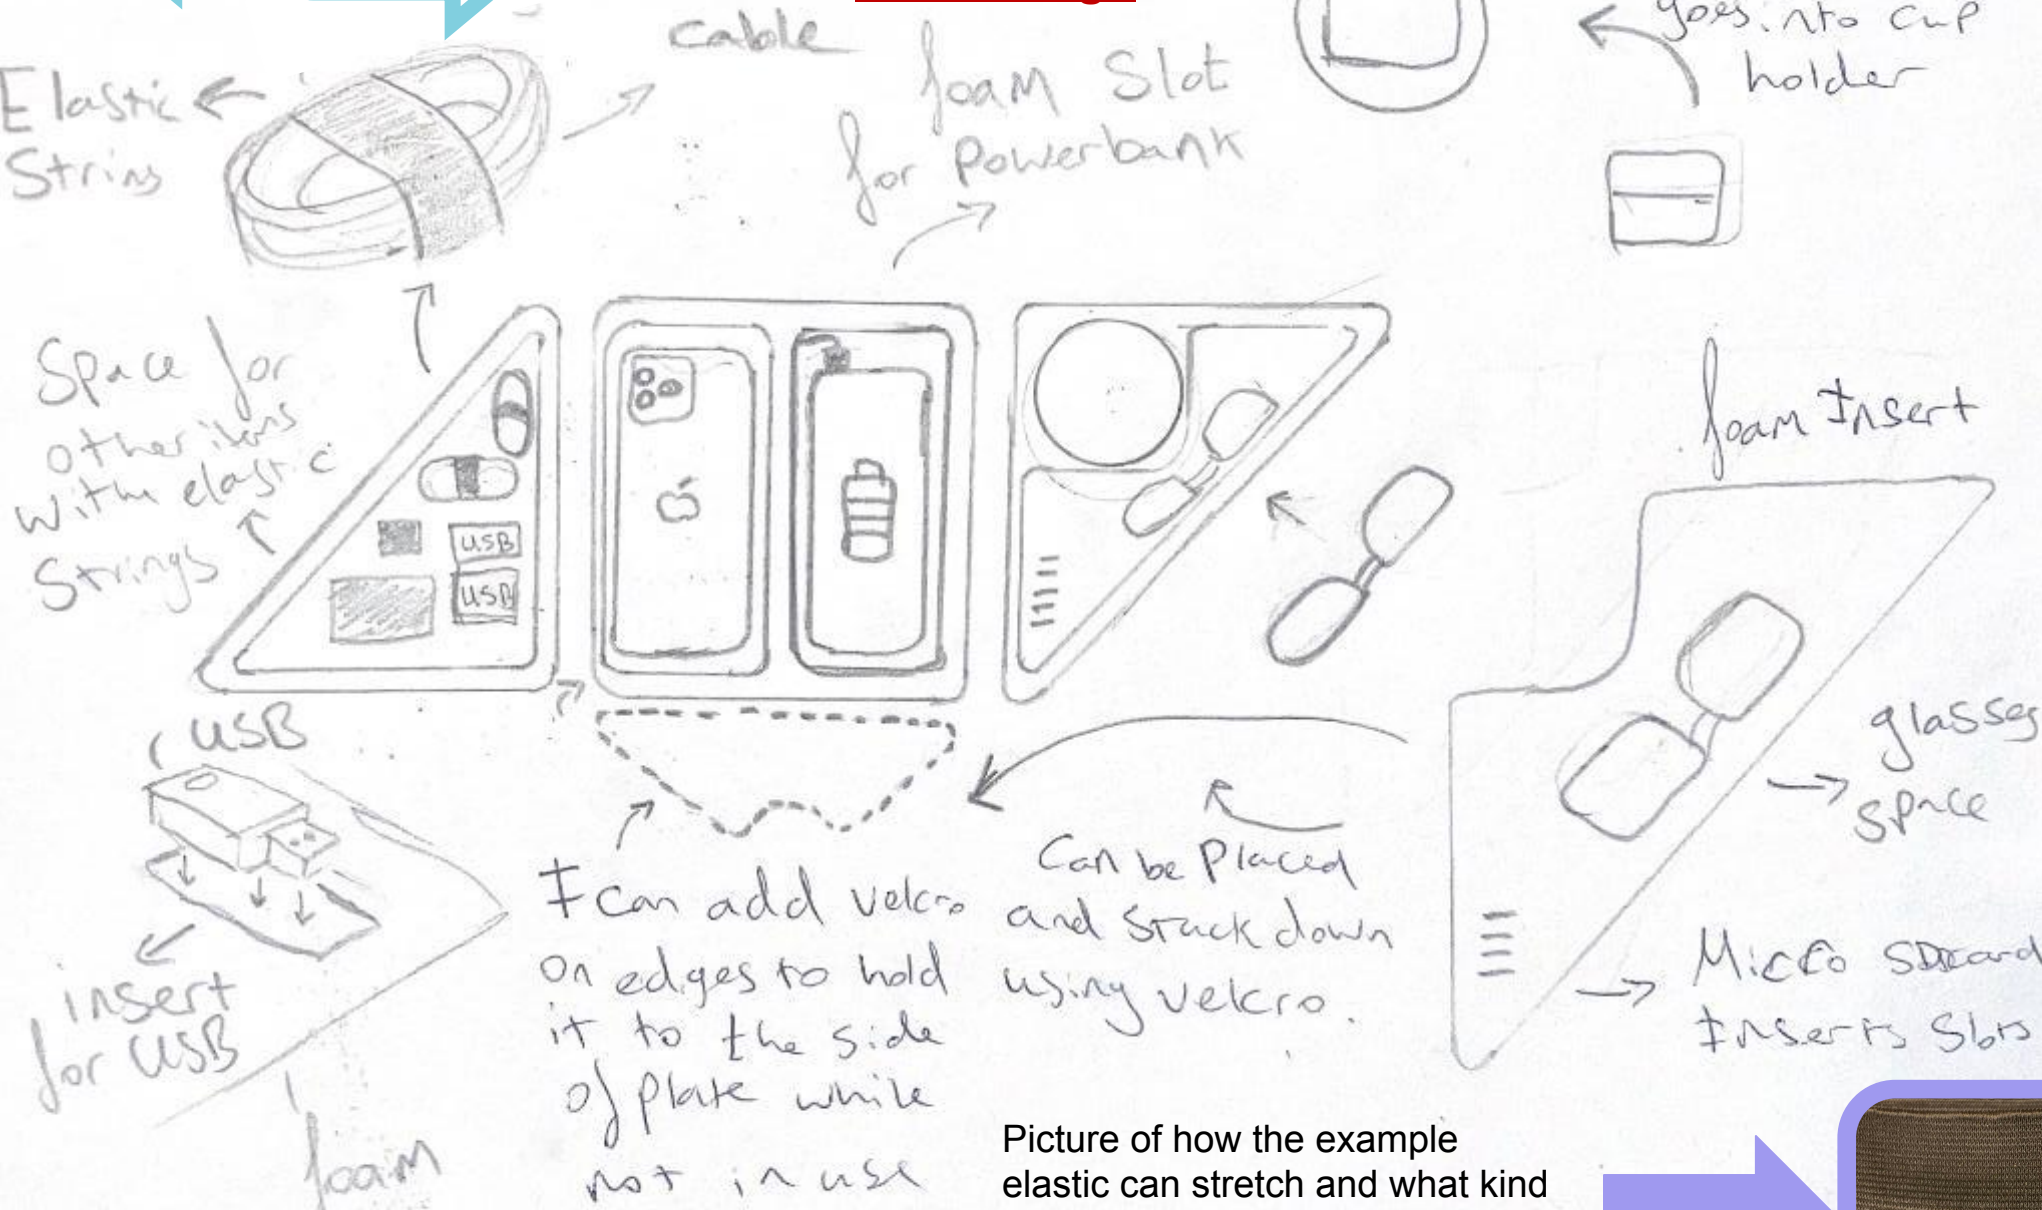 cable
Elastic
String
foam Slot
for Powerbank
goes into cup
holder
Space for
other items
with elastic
Strings
USB
USB
foam Insert
USB
insert
for USB
foam
I can add velcro
on edges to hold
it to the side
of plate while
not in use
Can be Placed
and stuck down
using velcro.
glasses
space
Micro SDcard
Inserts Slots
Picture of how the example
elastic can stretch and what kind